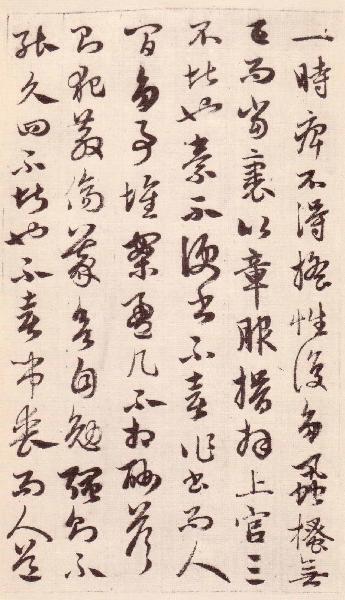 一時痺不得搖性復多虱搔無
已而當裹以章服揖拜上官三
不堪也素不便書不喜作書而人
間多事堆案盈几不相酬答
則犯教傷義欲自勉強則不
能久四不堪也不喜弔喪而人道